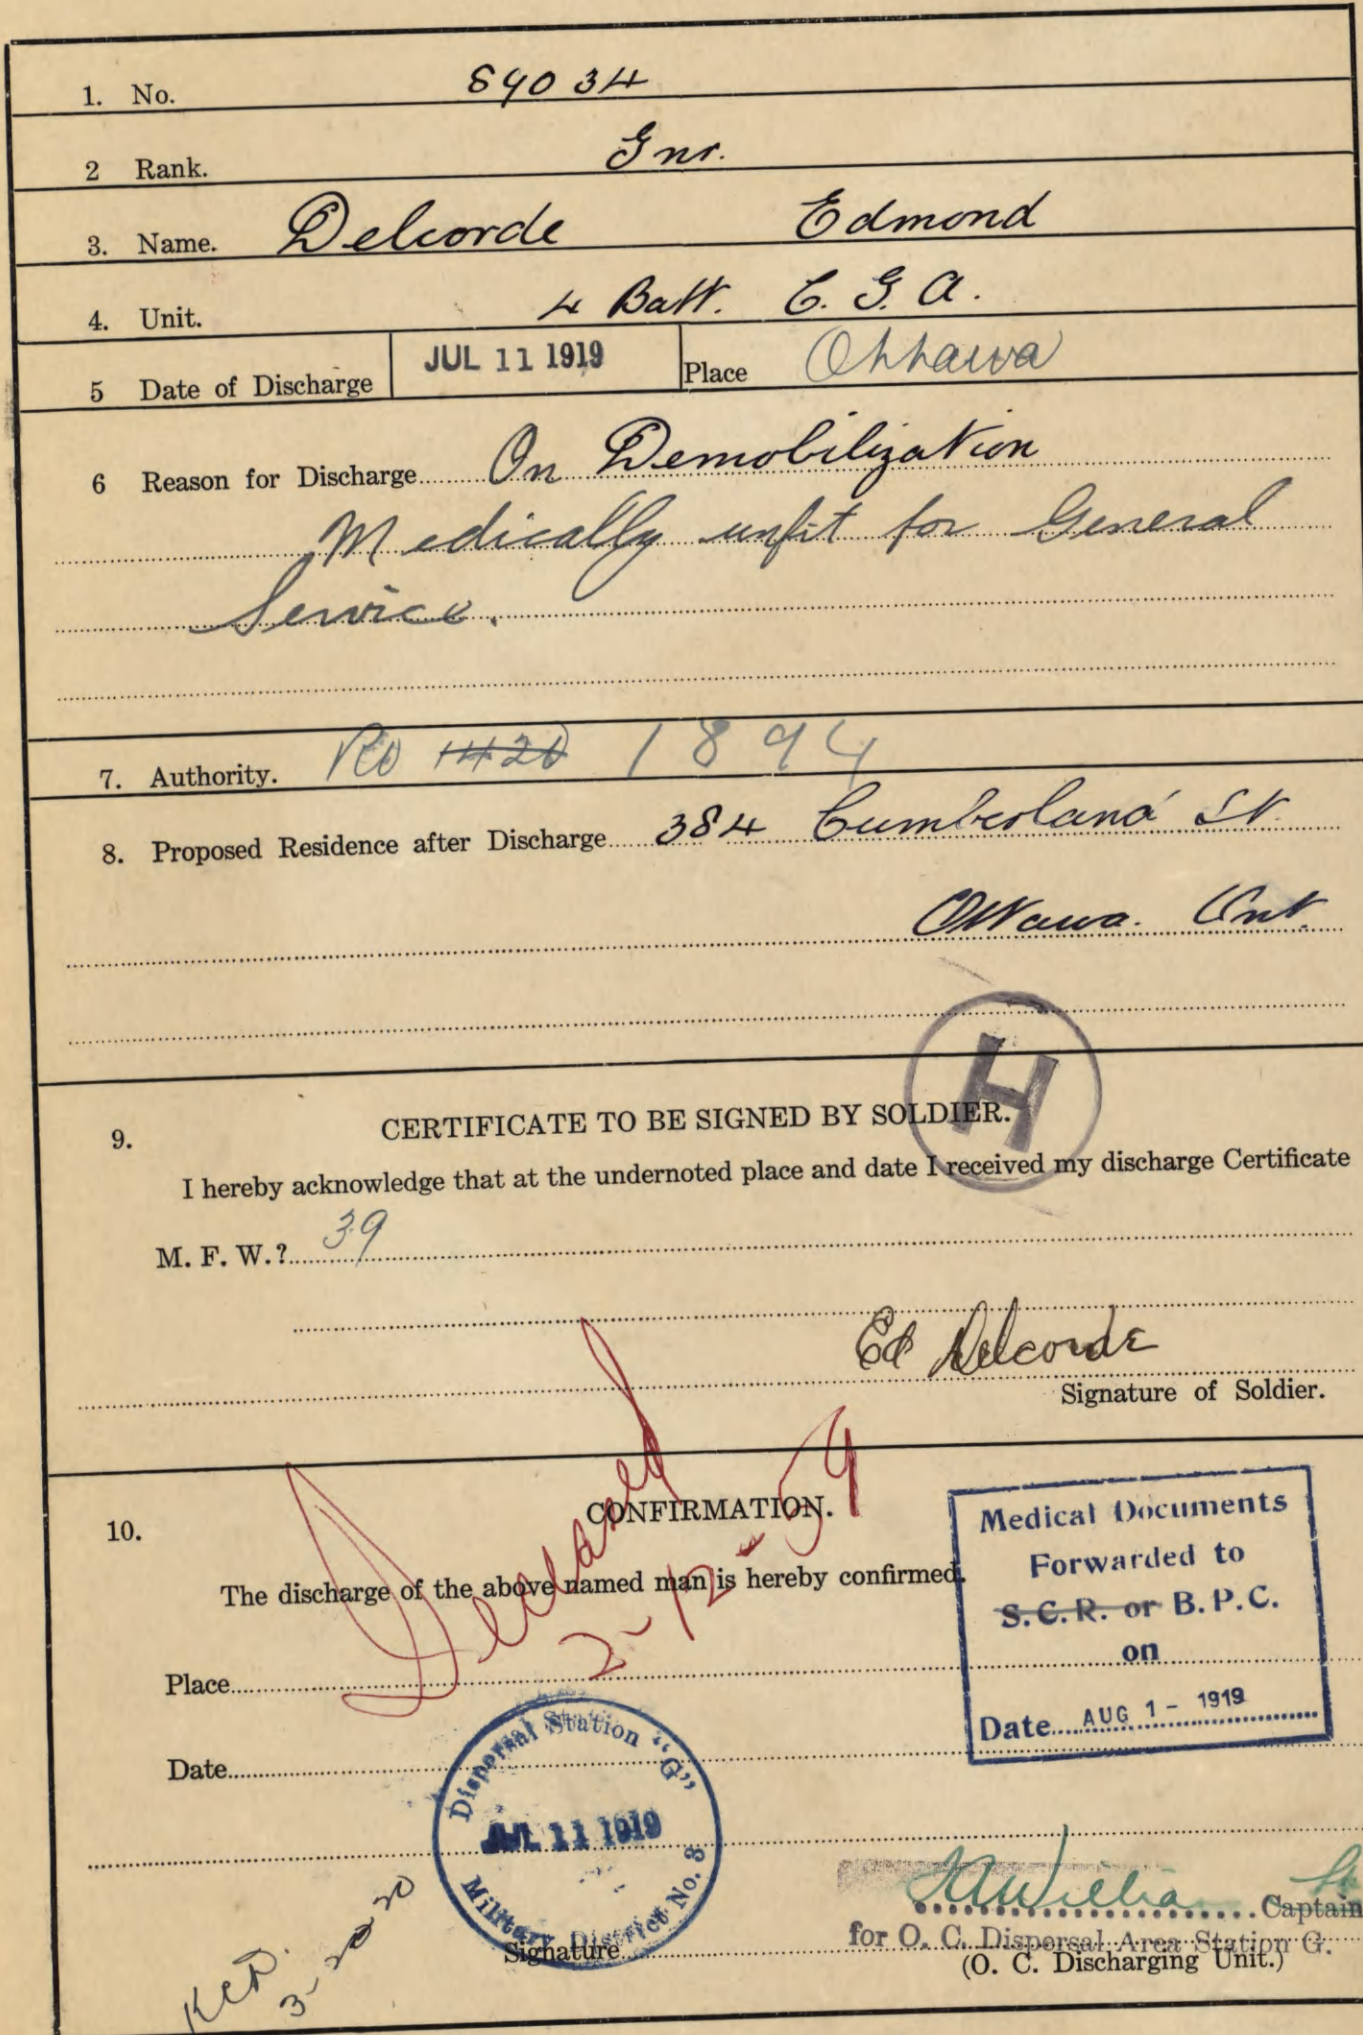 1. No. 89034
2 Rank. Gnr.
3. Name. Delcorde Edmond
4. Unit. 4 Batt. C. G. A.
5 Date of Discharge JUL 11 1919 Place Ottawa
6 Reason for Discharge On Demobilization
Medically unfit for General
Service.
7. Authority. RO 1420 1894
8. Proposed Residence after Discharge 384 Cumberland St.
Ottawa. Ont.
H
9. CERTIFICATE TO BE SIGNED BY SOLDIER.
I hereby acknowledge that at the undernoted place and date I received my discharge Certificate
M. F. W.? 39
Ed Delcorde
Signature of Soldier.
10. CONFIRMATION.
The discharge of the above named man is hereby confirmed.
Deceased
2-12-59
Medical Documents
Forwarded to
S.C.R. or B.P.C.
on
Date AUG 1 - 1919
Place
Date
Dispersal Station "G"
JUL 11 1919
Military District No. 3
Captain
for O. C. Dispersal Area Station G.
Signature
(O. C. Discharging Unit.)
3-20-20